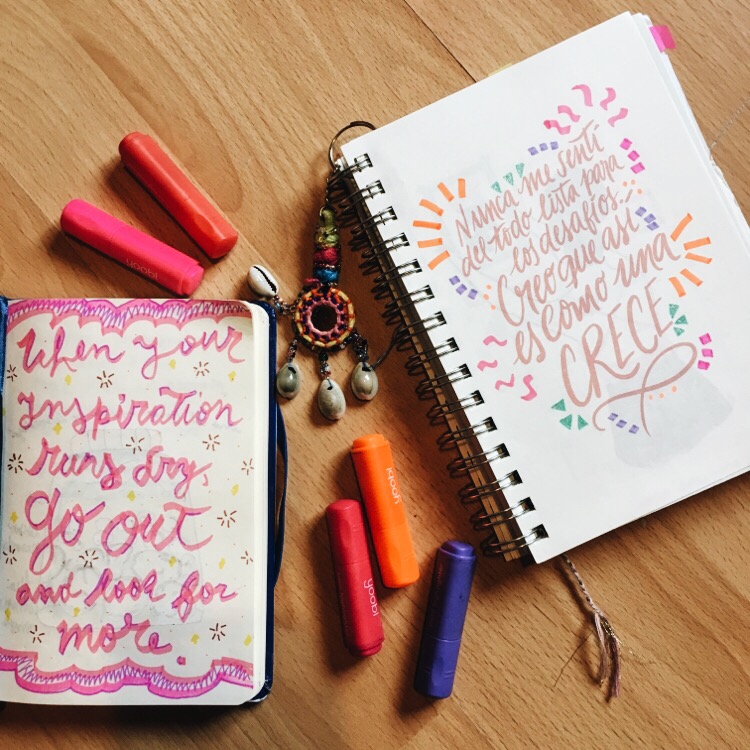 When your
inspiration
runs dry,
go out
and look for
more.
yoobi
Nunca me sentí
del todo lista para
los desafíos.
Creo que así
es como una
CRECE
yoobi
yoobi